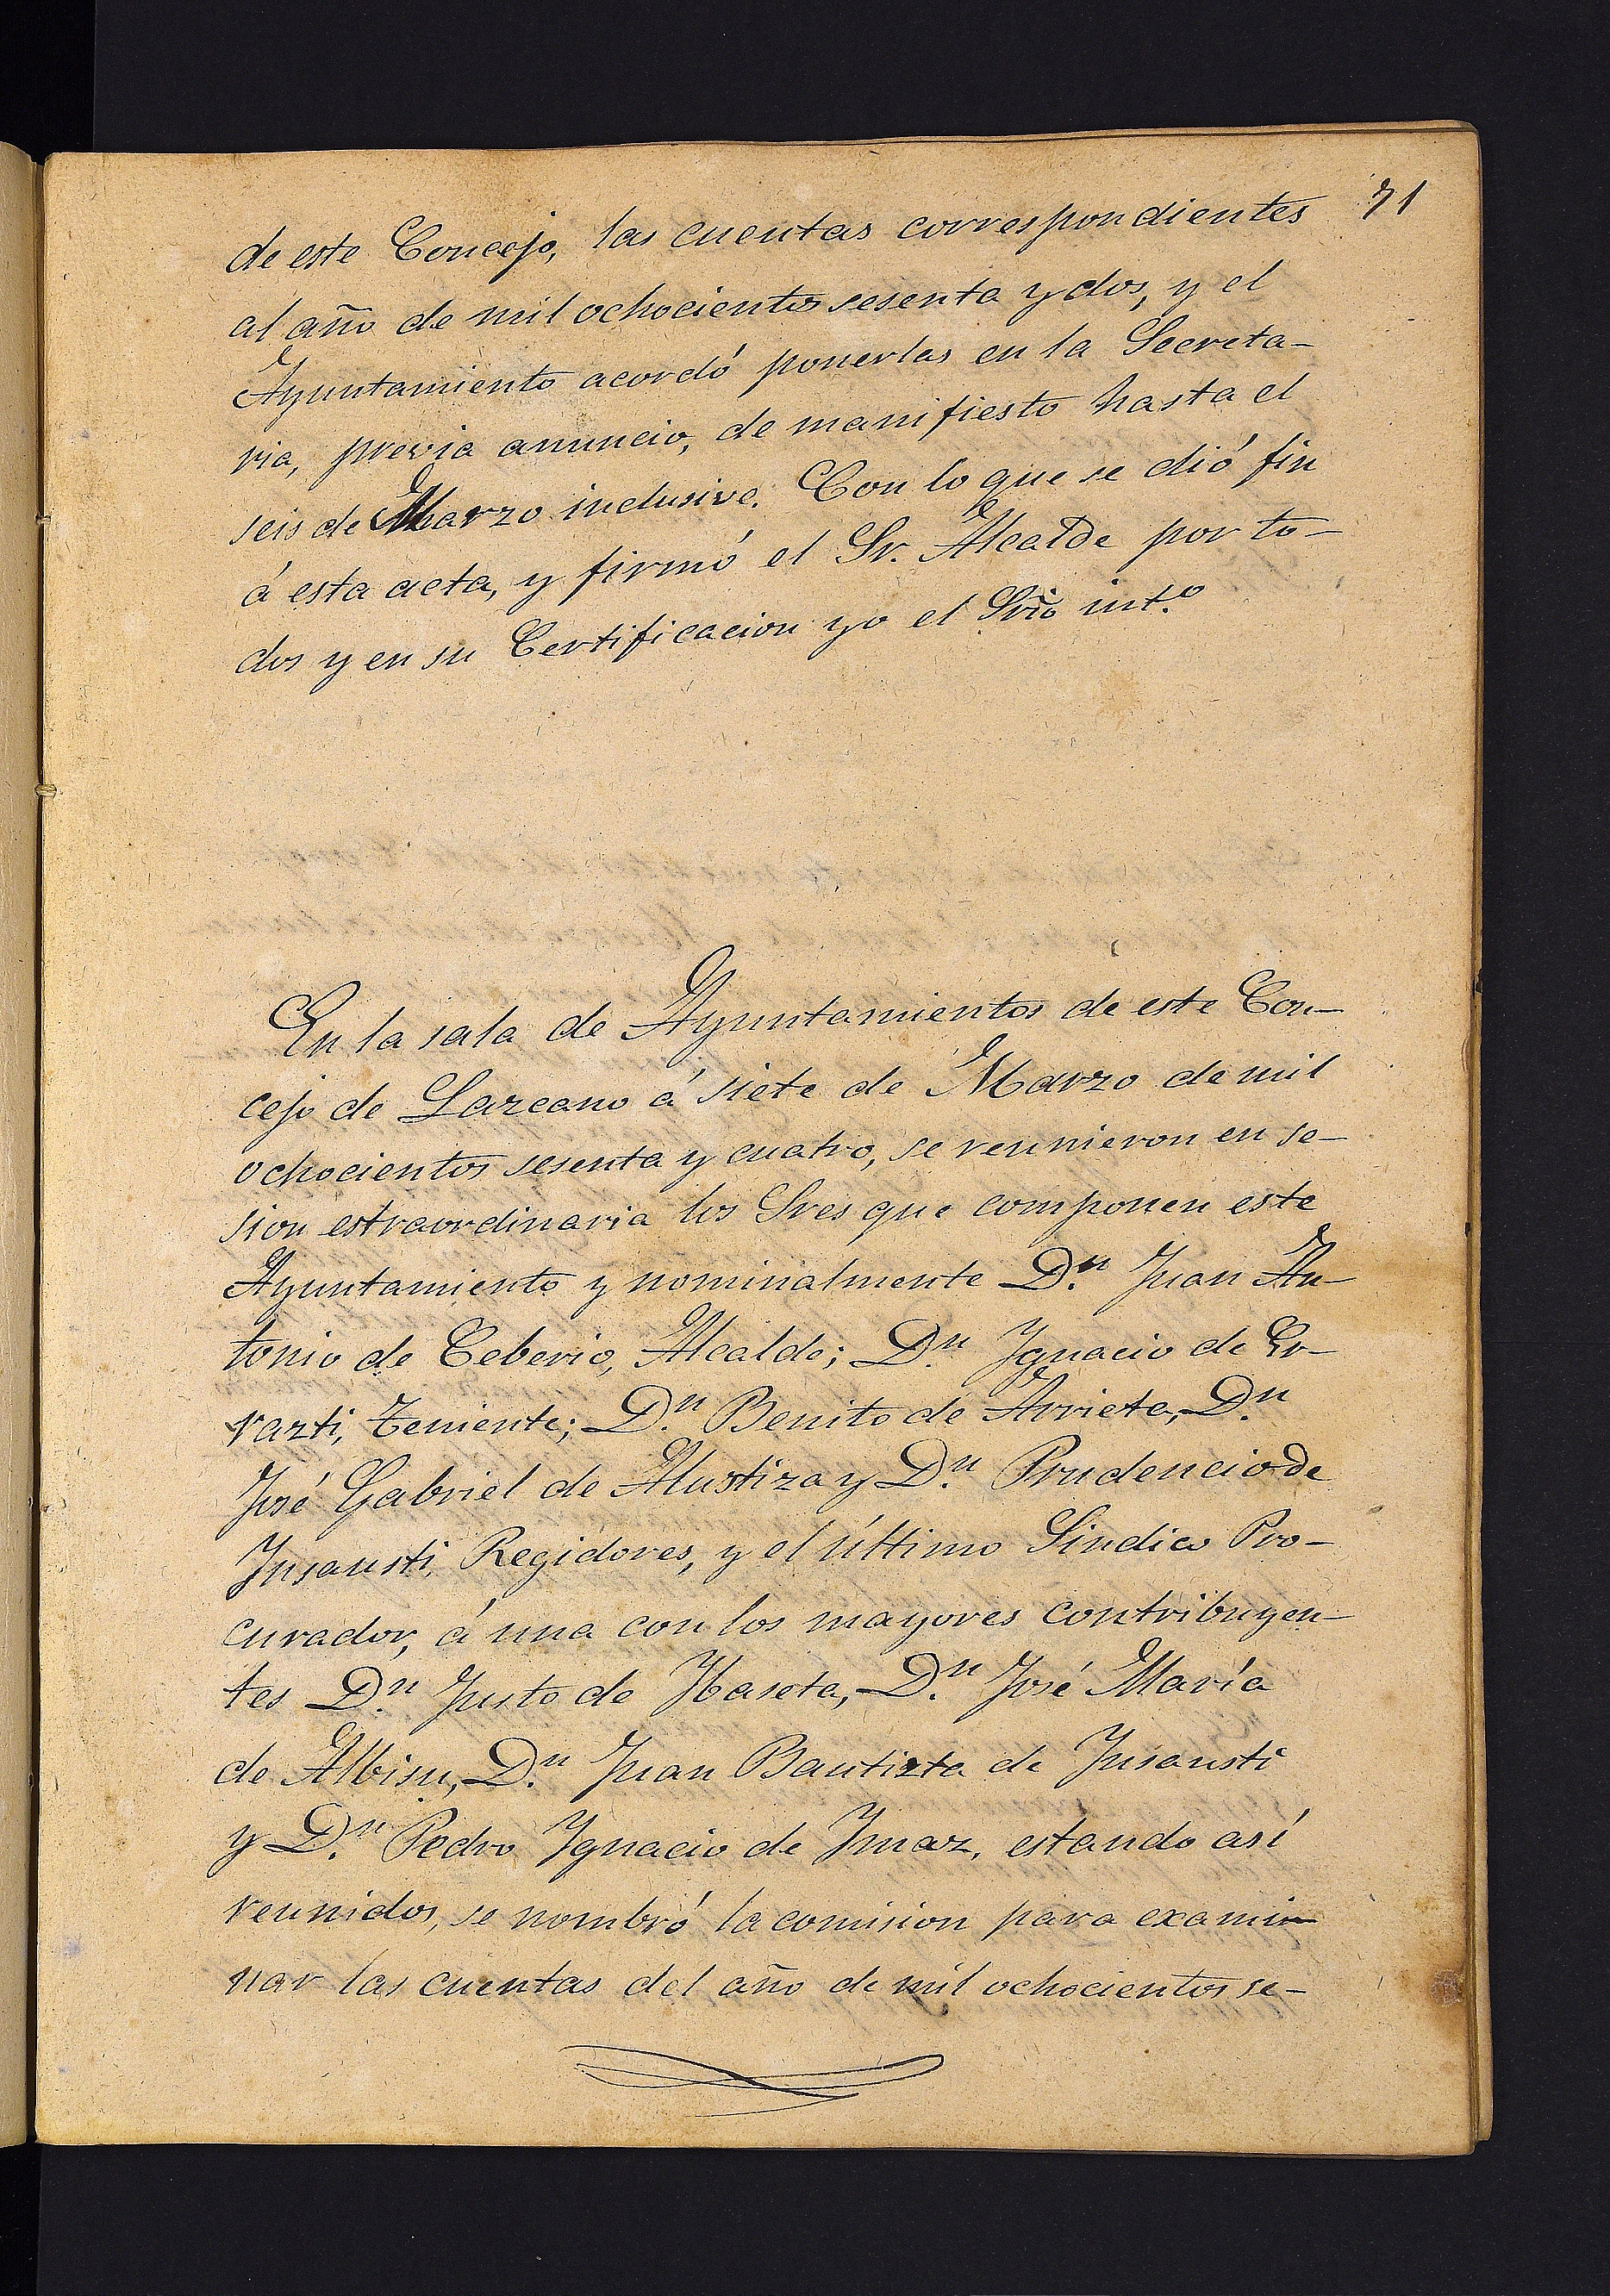 71
de este Concejo, las cuentas correspondientes
al año de mil ochocientos sesenta y dos, y el
Ayuntamiento acordó ponerlas en la Secreta-
ria, previa anuncio, de manifiesto hasta el
seis de Marzo inclusive. Con lo que se dió fin
á esta acta, y firmó el Sr. Alcalde por to-
dos y en su Certificacion yo el Srio int.º
En la sala de Ayuntamientos de este Con-
cejo de Lazcano á siete de Marzo de mil
ochocientos sesenta y cuatro, se reunieron en se-
sion estraordinaria los Sres que componen este
Ayuntamiento y nominalmente D.n Juan An-
tonio de Ceberio, Alcalde; D.n Ygnacio de Er-
razti, Teniente; D.n Benito de Arrieta, D.n
José Gabriel de Alustiza y D.n Prudencio de
Ynsausti, Regidores, y el último Sindico Pro-
curador, á una con los mayores contribuyen-
tes D.n Justo de Ybaseta, D.n José María
de Albisu, D.n Juan Bautizta de Ynsausti
y D.n Pedro Ygnacio de Ymaz, estando así
reunidos, se nombró la comision para exami-
nar las cuentas del año de mil ochocientos se-